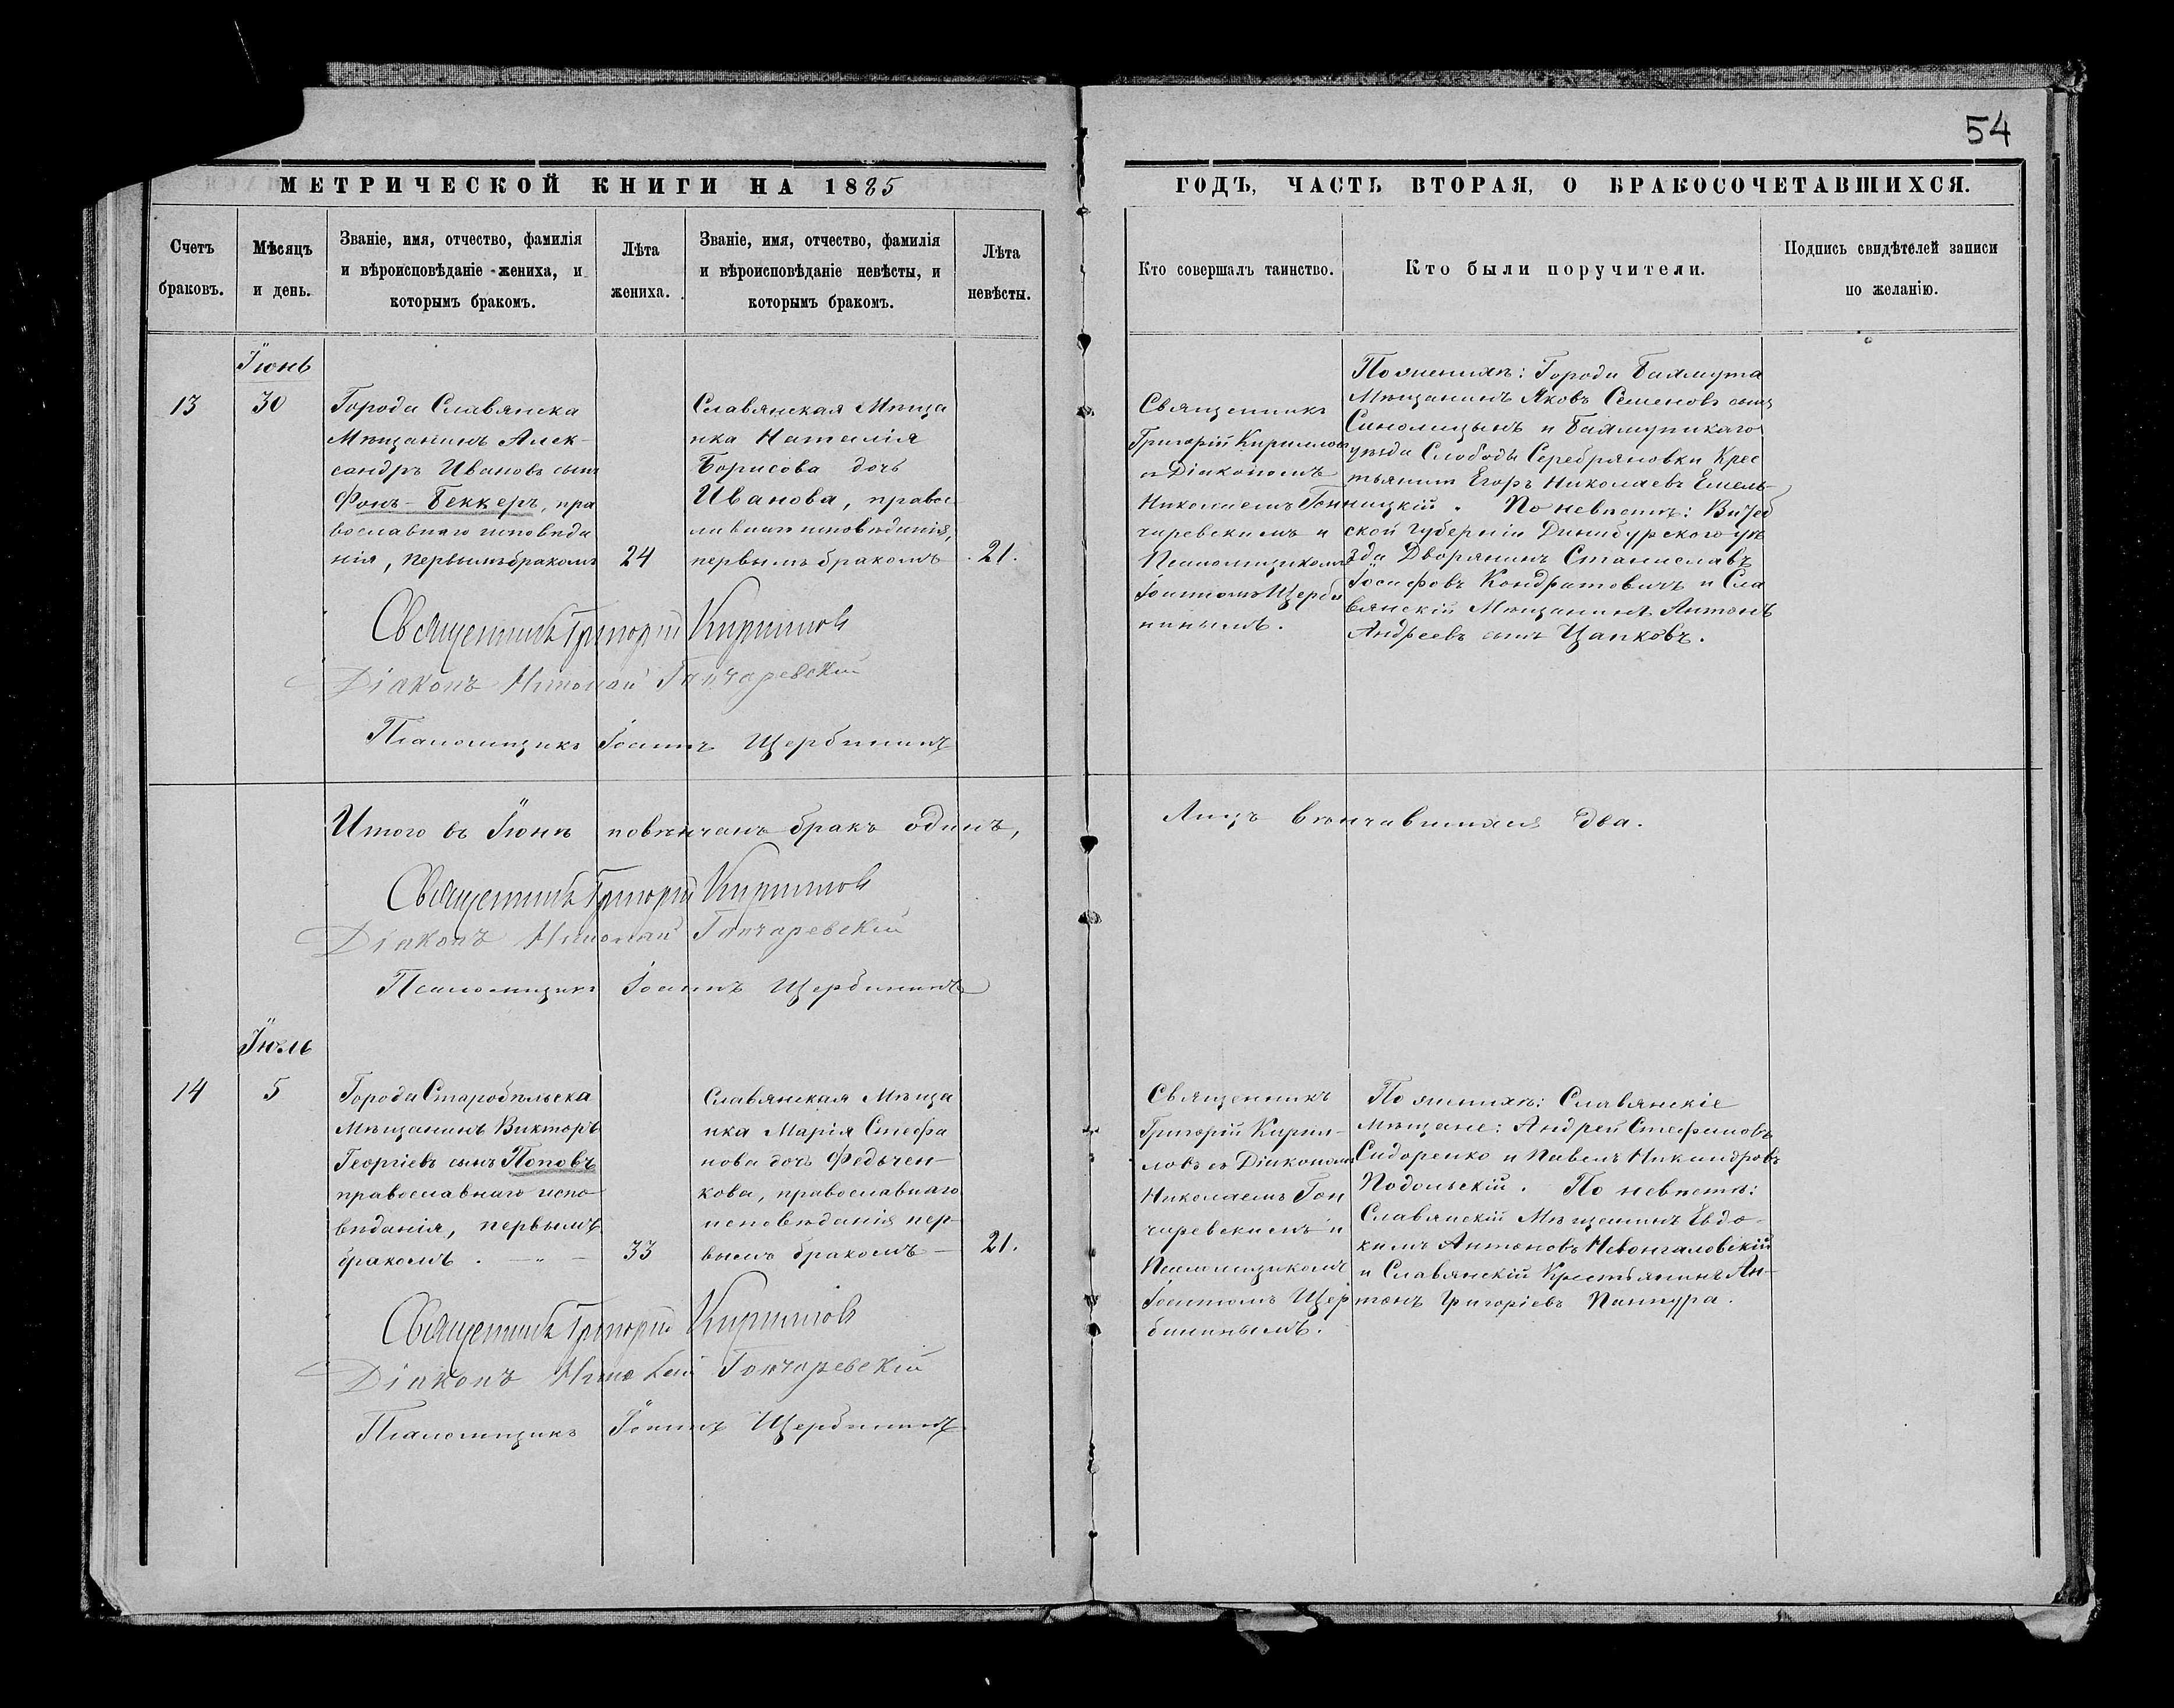 54
МЕТРИЧЕСКОЙ КНИГИ НА 1885
ГОДЪ, ЧАСТЬ ВТОРАЯ, О БРАКОСОЧЕТАВШИХСЯ.
Счетъ
браковъ.
Мѣсяцъ
и день.
Званіе, имя, отчество, фамилія
и вѣроисповѣданіе жениха, и
которымъ бракомъ.
Лѣта
жениха.
Званіе, имя, отчество, фамилія
и вѣроисповѣданіе невѣсты, и
которымъ бракомъ.
Лѣта
невѣсты.
Кто совершалъ таинство.
Кто были поручители.
Подпись свидѣтелей записи
по желанію.
Іюнь
13
30
Города Славянска
Мѣщанинъ Алек-
сандръ Ивановъ сынъ
Фонъ-Беккеръ, пра
вославнаго исповѣда
нія, первымъ бракомъ
24
Славянская Мѣща
нка Наталія
Борисова дочь
Иванова, правос
лавнаго исповѣданія,
первымъ бракомъ
21.
Священникъ
Григорій Кирилловъ
съ Діакономъ
Николаемъ Гон
чаревскимъ и
Псаломщикомъ
Іоанномъ Щерби
нинымъ.
По женихѣ: Города Бахмута
Мѣщанинъ Яковъ Семеновъ сынъ
и Бахмутскаго
уѣзда Слободы Серебряновки Крес
тьянинъ Егоръ Николаевъ Емель-
ницкій. По невѣстѣ: Витеб
ской Губерніи Динабурского уѣ
зда Дворянинъ Станиславъ
Іосифовъ Кондратовичъ и Сла
вянскій Мѣщанинъ Антонъ
Андреевъ сынъ Цапковъ.
Священникъ Григорій Кирилловъ
Діаконъ Николай Гончаревскій
Псаломщикъ Іоаннъ Щербининъ
Итого въ Іюнѣ повѣнчанъ бракъ одинъ,
Лицъ вѣнчавшихся два.
Священникъ Григорій Кирилловъ
Діаконъ Николай Гончаревскій
Псаломщикъ Іоаннъ Щербининъ
Іюль
14
5
Города Старобѣльска
Мѣщанинъ Викторъ
Георгіевъ сынъ Поповъ
православнаго испо
вѣданія, первымъ
бракомъ. — „ —
33
Славянская Мѣща
нка Марія Стефа
нова дочь Федьчен-
кова, православнаго
исповѣданія пер-
вымъ бракомъ —
21.
Священникъ
Григорій Кирил-
ловъ съ Діакономъ
Николаемъ Гон
чаревскимъ и
Псаломщикомъ
Іоанномъ Щер
бининымъ.
По женихѣ: Славянскіе
Мѣщане: Андрей Стефановъ
Сидоренко и Павелъ Никандровъ
Подольскій. По невѣстѣ:
Славянскій Мѣщанинъ Евдо-
кимъ Антоновъ
и Славянскій Крестьянинъ Ан-
тонъ Григоріевъ
Священникъ Григорій Кирилловъ
Діаконъ Николай Гончаревскій
Псаломщикъ Іоаннъ Щербининъ